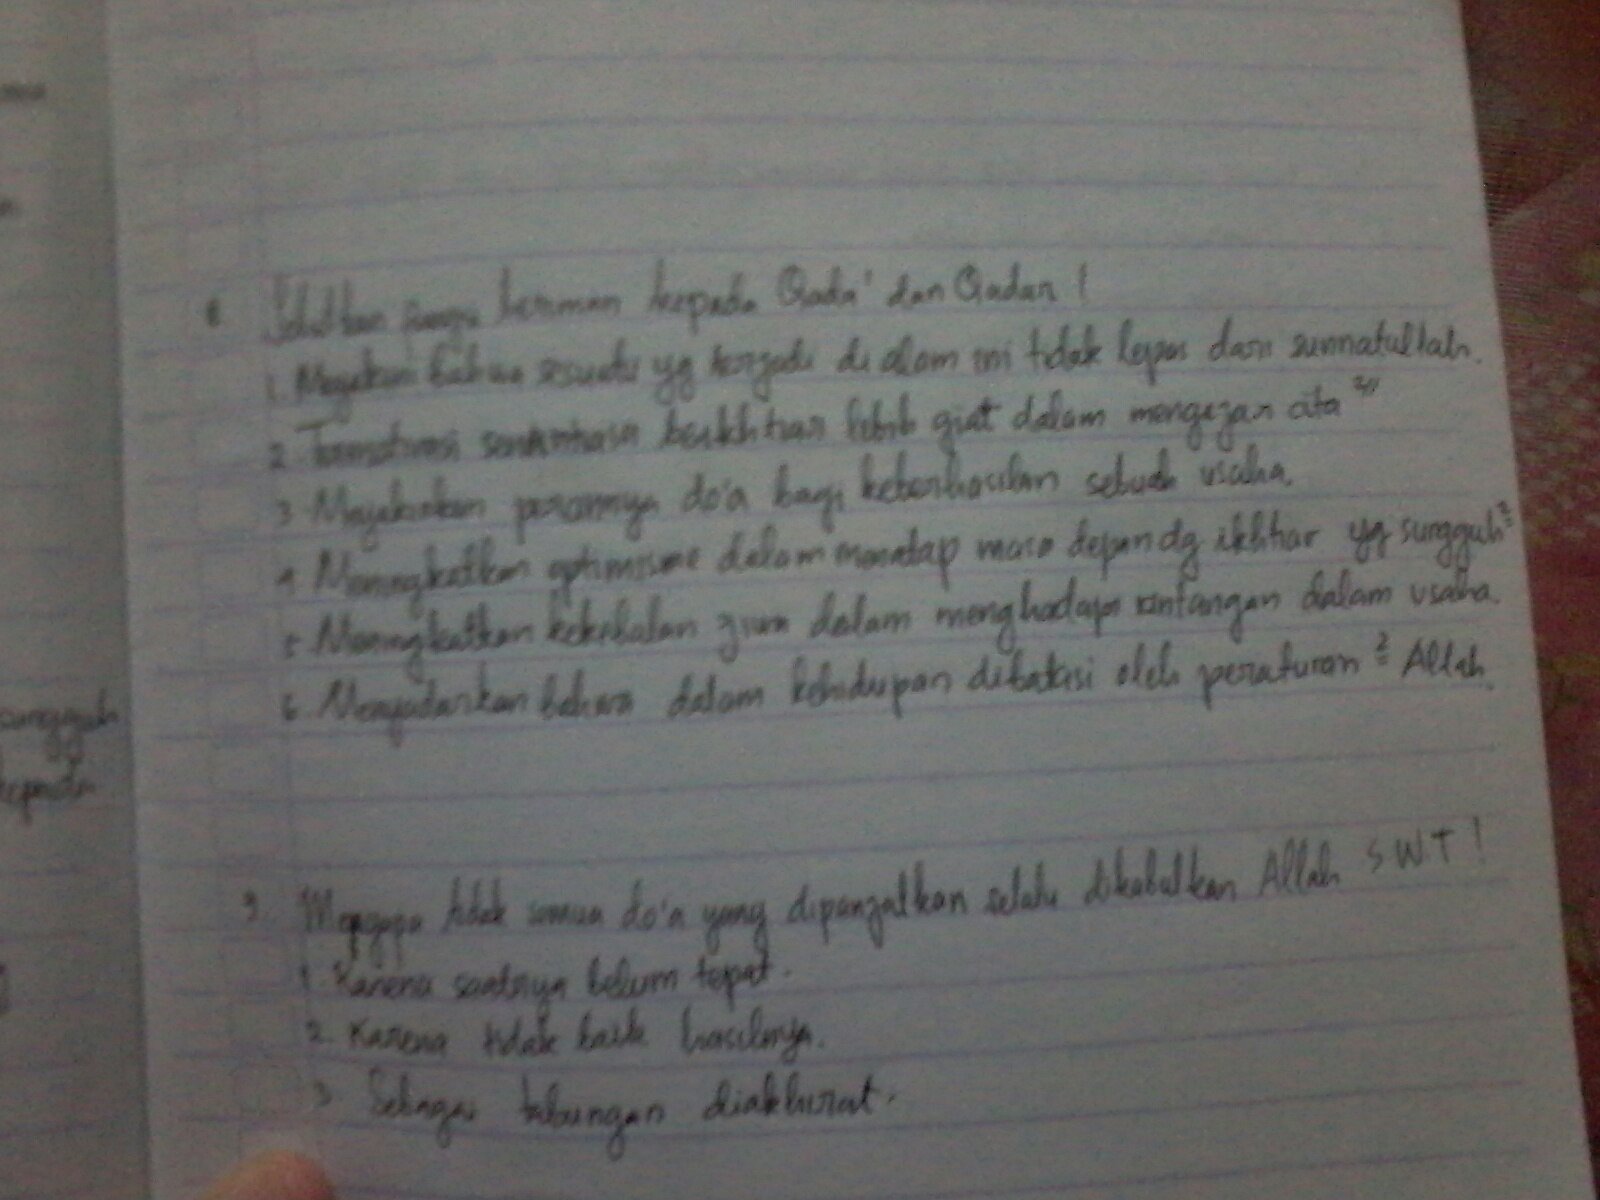 8 Sebutkan fungsi beriman kepada Qada' dan Qadar !
1. Meyakini bahwa sesuatu yg terjadi di alam ini tidak lepas dari sunnatullah.
2. Termotivasi senantiasa berikhtiar lebih giat dalam mengejar cita "
3. Meyakinkan perannya do'a bagi keberhasilan sebuah usaha.
4. Meningkatkan optimisme dalam menatap masa depan dg ikhtiar yg sungguh²
5. Meningkatkan kekebalan jiwa dalam menghadapi rintangan dalam usaha.
6. Menyadarkan bahwa dalam kehidupan dibatasi oleh peraturan² Allah.
9. Mengapa tidak semua do'a yang dipanjatkan selalu dikabulkan Allah SWT !
1. Karena saatnya belum tepat.
2. Karena tidak baik hasilnya.
3. Sebagai tabungan diakhirat.
sungguh
kepada